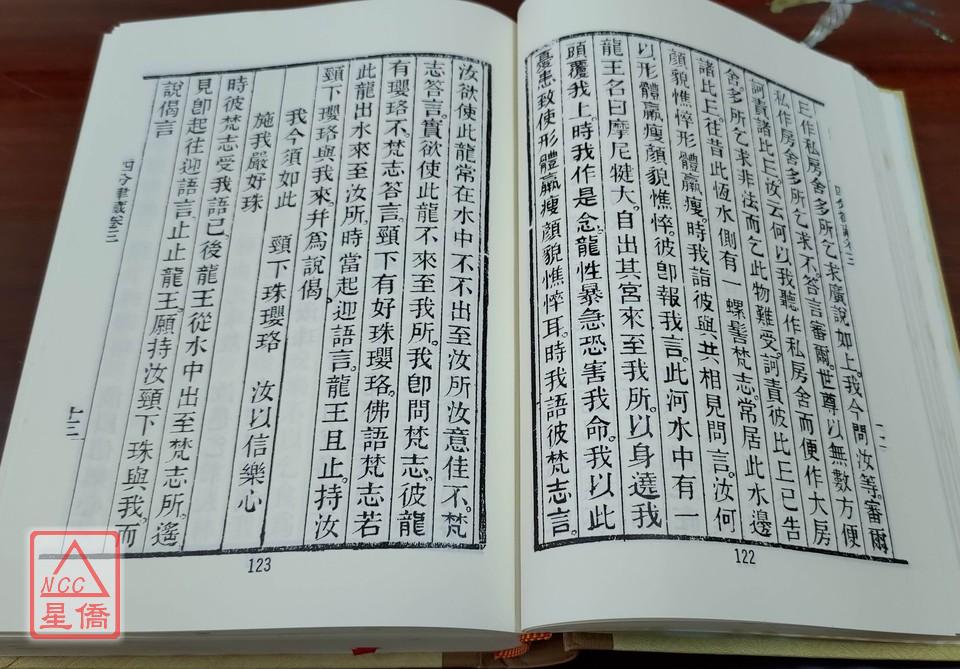 丘作私房舍多所乞求不答言審爾世尊以無數方便
私作房舍多所乞求廣說如上我今問汝等審爾
訶責諸比丘汝云何以我聽作私房舍而便作大房
舍多所乞求非法而乞此物難受訶責彼比丘已告
諸比丘往昔此恆水側有一螺髻梵志常居此水邊
顏貌憔悴形體羸瘦時我詣彼與共相見問言汝何
以形體羸瘦顏貌憔悴彼即報我言此河水中有一
龍王名曰摩尼犍大自出其宮來至我所以身遶我
頭覆我上時我作是念龍性暴急恐害我命我以此
憂患致使形體羸瘦顏貌憔悴耳時我語彼梵志言
122
汝欲使此龍常在水中不不出至汝所汝意佳不梵
志答言實欲使此龍不來至我所我即問梵志彼龍
有瓔珞不梵志答言頸下有好珠瓔珞佛語梵志若
此龍出水來至汝所時當起迎語言龍王且止持汝
頸下瓔珞與我來并為說偈
我今須如此 頸下珠瓔珞 汝以信樂心
施我嚴好珠
時彼梵志受我語已後龍王從水中出至梵志所遙
見即起往迎語言止止龍王願持汝頸下珠與我而
說偈言
四分律藏卷三
十三
123
NCC
星僑